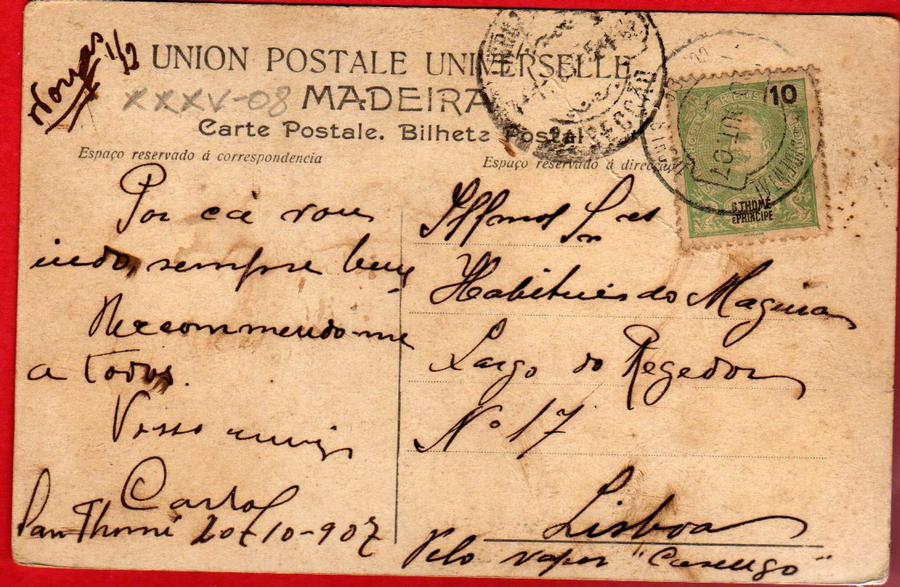 UNION POSTALE UNIVERSELLE
XXXV-08 MADEIRA
Carte Postale. Bilhete Postal
Espaço reservado á correspondencia
Espaço reservado á direcção
1/2
10
S. THOMÉ
E PRINCIPE
Por cá vou
indo, sempre bem
Recommendo-me
a todos.
Vosso amigo
Carlos
San Thomé 20-10-907
Habitués do Magina
Largo do Regedor
Nº 17
Lisboa
Pelo vapor "Casengo"